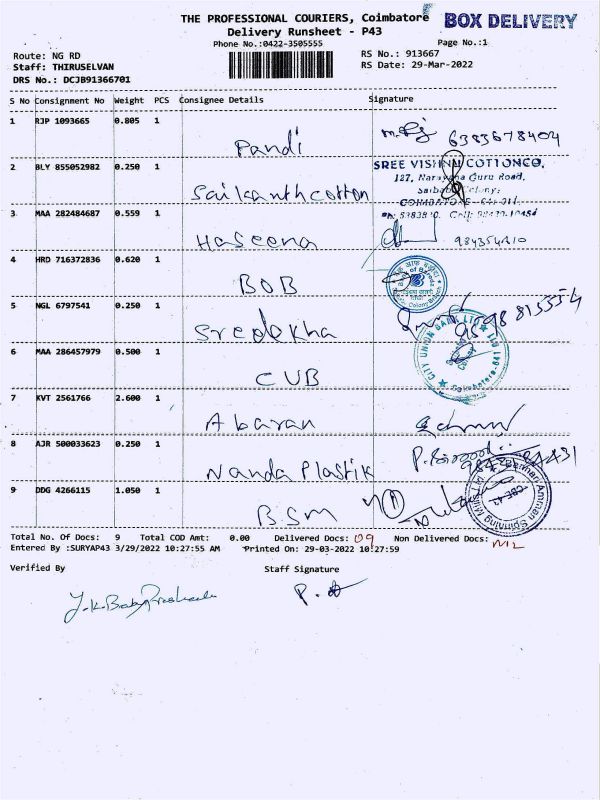 THE PROFESSIONAL COURIERS, Coimbatore
BOX DELIVERY
Delivery Runsheet - P43
Phone No.:0422-3505555
Page No.:1
Route: NG RD
RS No.: 913667
Staff: THIRUSELVAN
RS Date: 29-Mar-2022
DRS No.: DCJB91366701
S No Consignment No Weight PCS Consignee Details Signature
1 RJP 1093665 0.805 1
Pandi 6383678404
2 BLY 855052982 0.250 1
Saikanthcotton
SREE VISHNU COTTON CO.
127, Narayana Guru Road,
Saibaba Colony,
COIMBATORE
3 MAA 282484687 0.559 1
Haseena
4 HRD 716372836 0.620 1
BOB
5 NGL 6797541 0.250 1
Sredekha
6 MAA 286457979 0.500 1
CUB
CITY UNION BANK LTD
7 KVT 2561766 2.600 1
Abaran
8 AJR 500033623 0.250 1
Nanda Plastik
9 DDG 4266115 1.050 1
BSM
Total No. Of Docs: 9 Total COD Amt: 0.00 Delivered Docs: 09 Non Delivered Docs:
Entered By :SURYAP43 3/29/2022 10:27:55 AM Printed On: 29-03-2022 10:27:59
Verified By Staff Signature